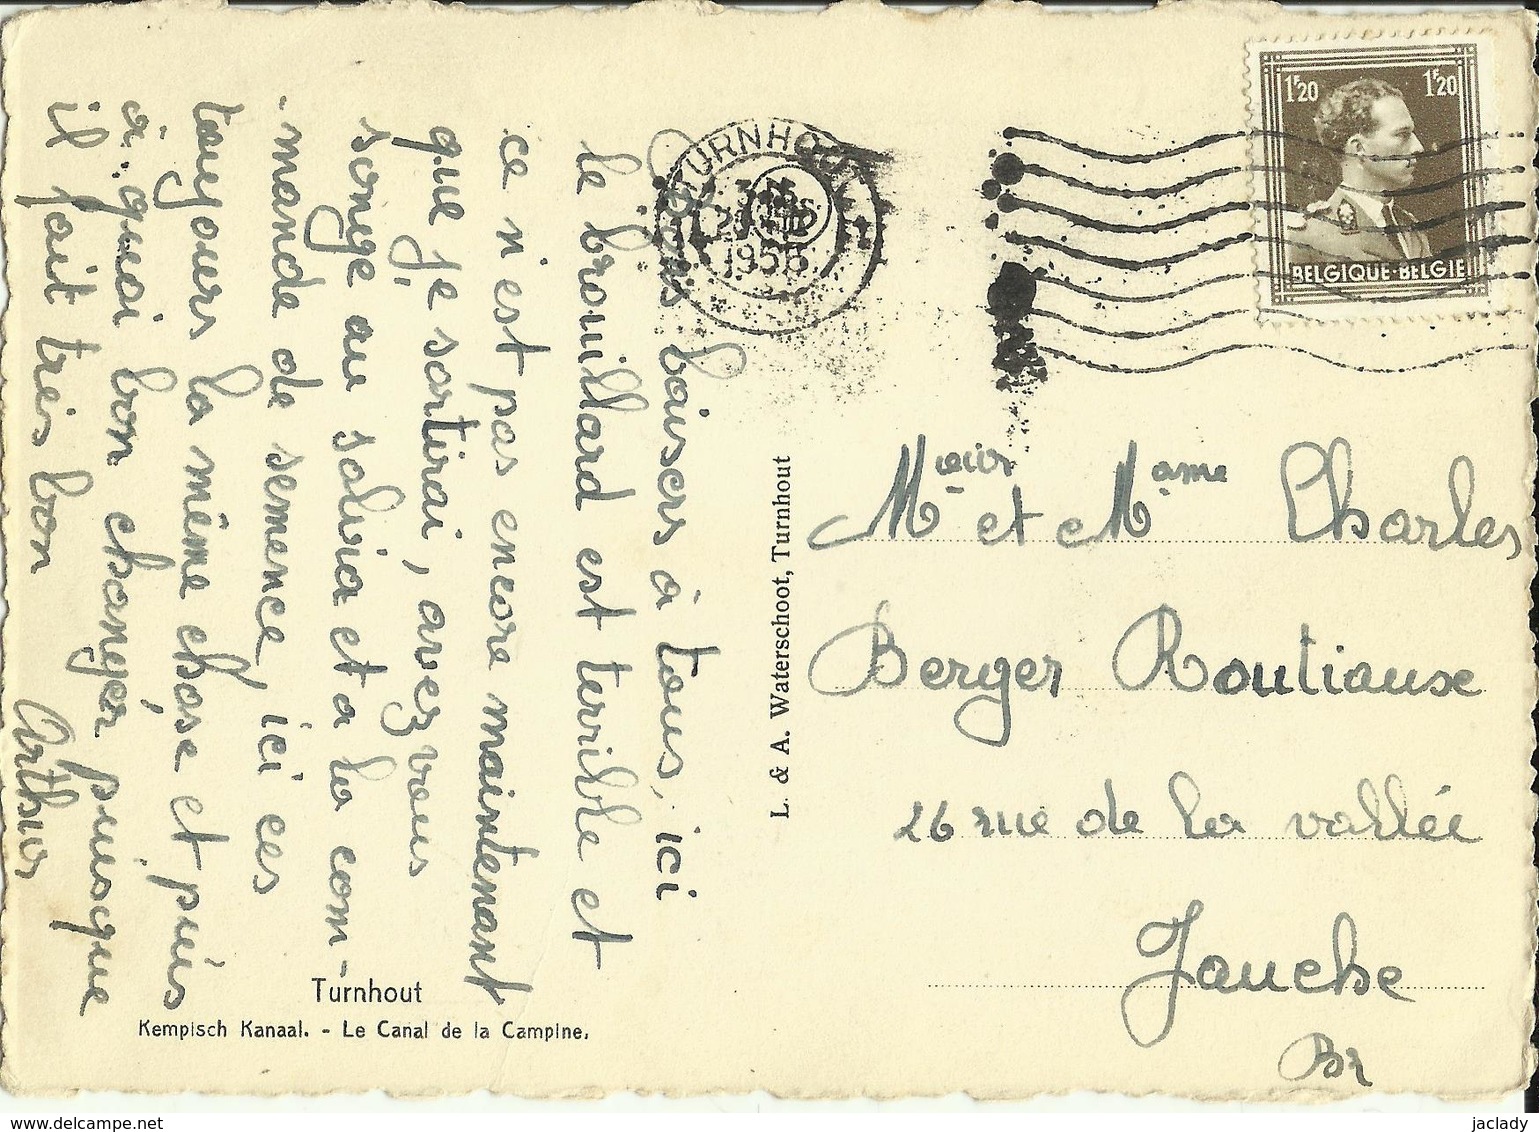 Bons baisers à tous, ici
le brouillard est terrible et
ce n'est pas encore maintenant
que je sortirai, avez vous
songé au salvia et a la com-
-mande de semence, ici ces
toujours la même chose et puis
à quoi bon changer puisque
il fait très bon Arthur
Turnhout
Kempisch Kanaal. - Le Canal de la Campine.
L. & A. Waterschoot, Turnhout
TURNHOUT
1F20 1F20
BELGIQUE-BELGIE
Mieur et Mame Charles
Berger Routiause
26 rue de la vallée
Jauche
Br
delcampe.net
jaclady